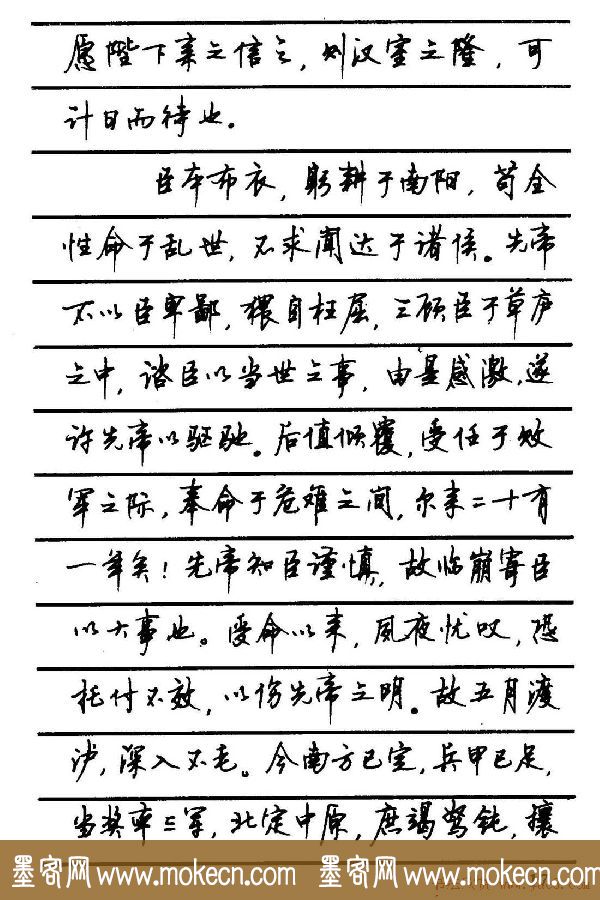 愿陛下亲之信之，则汉室之隆，可
计日而待也。
臣本布衣，躬耕于南阳，苟全
性命于乱世，不求闻达于诸侯。先帝
不以臣卑鄙，猥自枉屈，三顾臣于草庐
之中，谘臣以当世之事，由是感激，遂
许先帝以驱驰。后值倾覆，受任于败
军之际，奉命于危难之间，尔来二十有
一年矣！先帝知臣谨慎，故临崩寄臣
以大事也。受命以来，夙夜忧叹，恐
托付不效，以伤先帝之明。故五月渡
泸，深入不毛。今南方已定，兵甲已足，
当奖率三军，北定中原，庶竭驽钝，攘
墨客网 www.mokecn.com 墨客网 www.mokecn.com